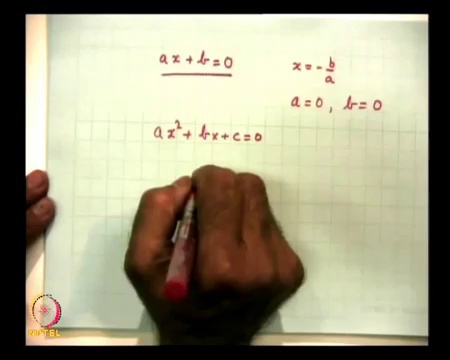 ax + b = 0
x = - b/a
a = 0, b = 0
ax² + bx + c = 0
NPTEL